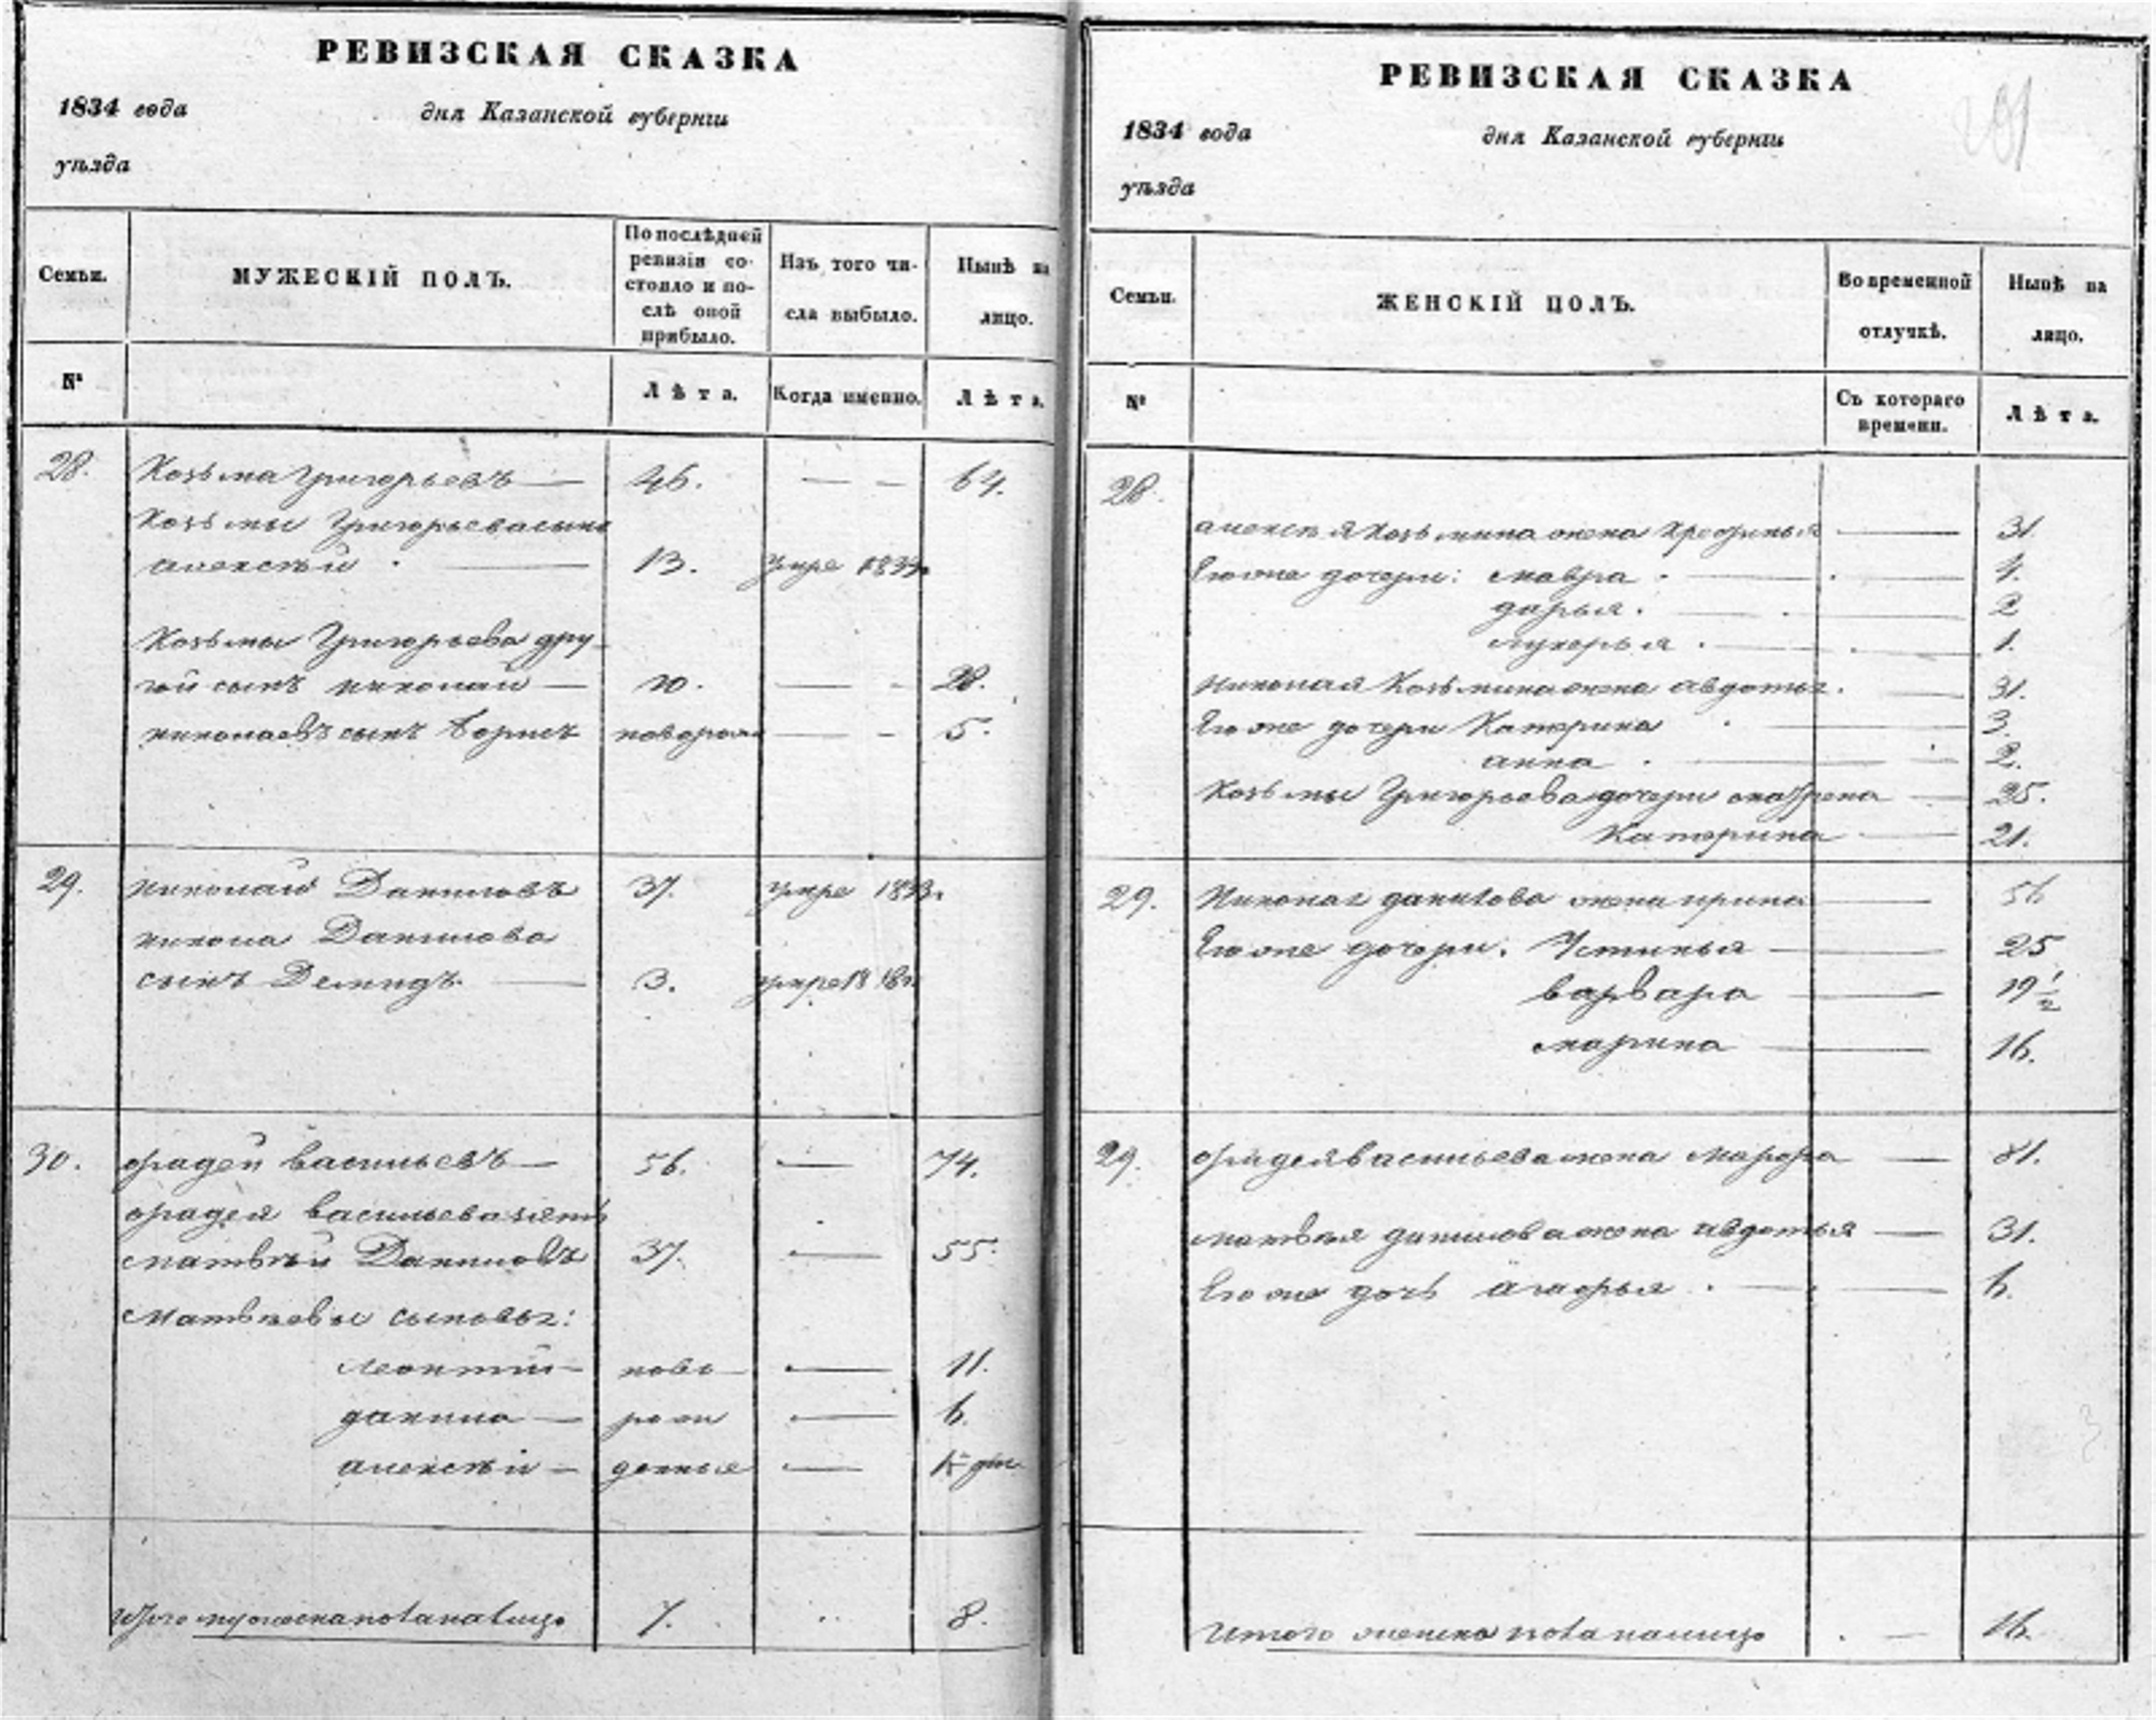 РЕВИЗСКАЯ СКАЗКА
1834 года дня Казанской губерніи
уѣзда
Семьи. МУЖЕСКІЙ ПОЛЪ. По послѣдней ревизіи состояло и послѣ оной прибыло. Изъ того числа выбыло. Нынѣ на лицо.
№ Лѣта. Когда именно. Лѣта.
28. Козьма Григорьевъ 46. — — 64.
Козьмы Григорьева сынъ
алексѣй 13. умре
Козьмы Григорьева дру-
гой сынъ николай — 10. — - 28.
николаевъ сынъ борисъ новорож — - 5.
29. николай Даниловъ 37. умре
никола Данилова
сынъ Демидъ. 3. умре
30. фадей васильевъ — 56. — 74.
фадея васильева зять
матвѣй Даниловъ 37. — 55.
Матвѣевы сыновья:
леонтій — ново — 11.
данила — рож — 6.
алексѣй — денные —
Итого мужеска пола налицо 7. 8.
РЕВИЗСКАЯ СКАЗКА
1834 года дня Казанской губерніи
уѣзда
291
Семьи. ЖЕНСКІЙ ПОЛЪ. Во временной отлучкѣ. Нынѣ на лицо.
№ Съ котораго времени. Лѣта.
28. алексѣя Козьмина жена — 31.
Его же дочери: мавра . — 4.
дарья . — 2
лукерья . — 1.
Николая Козьмина жена авдотья. — 31.
Его же дочери Катерина — 3.
анна . — 2.
Козьмы Григорьева дочери матрена — 25.
Катерина — 21.
29. Никола данилова жена ирина — 56
Его же дочери. Устинья — 25
варвара — 19 1/2
марина — 16.
29. фадея васильева жена марфа — 81.
матвея данилова жена авдотья — 31.
Его же дочь — 6.
Итого женска пола налицо . — 16.